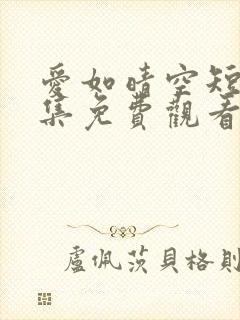 愛如晴空短
集免費觀看
盧佩茨貝格則